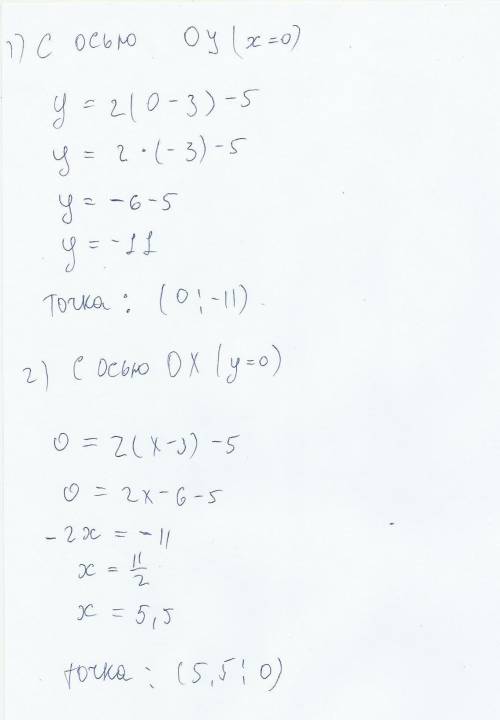 1) С осью ОУ (x=0)
y = 2(0 - 3) - 5
y = 2 · (- 3) - 5
y = - 6 - 5
y = - 11
точка : (0 ; -11)
2) С осью ОХ (y=0)
0 = 2(x-3) - 5
0 = 2x - 6 - 5
- 2x = - 11
x = 11/2
x = 5,5
точка : (5,5 ; 0)